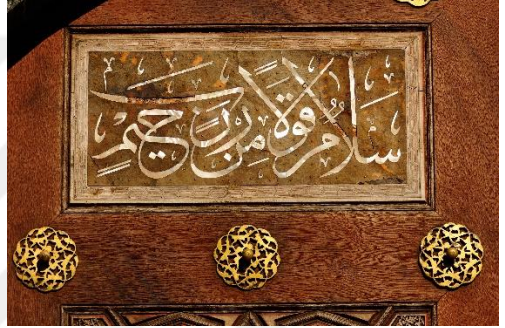 سَلَامٌ قَوْلًا مِنْ رَبٍّ رَحِيمٍ